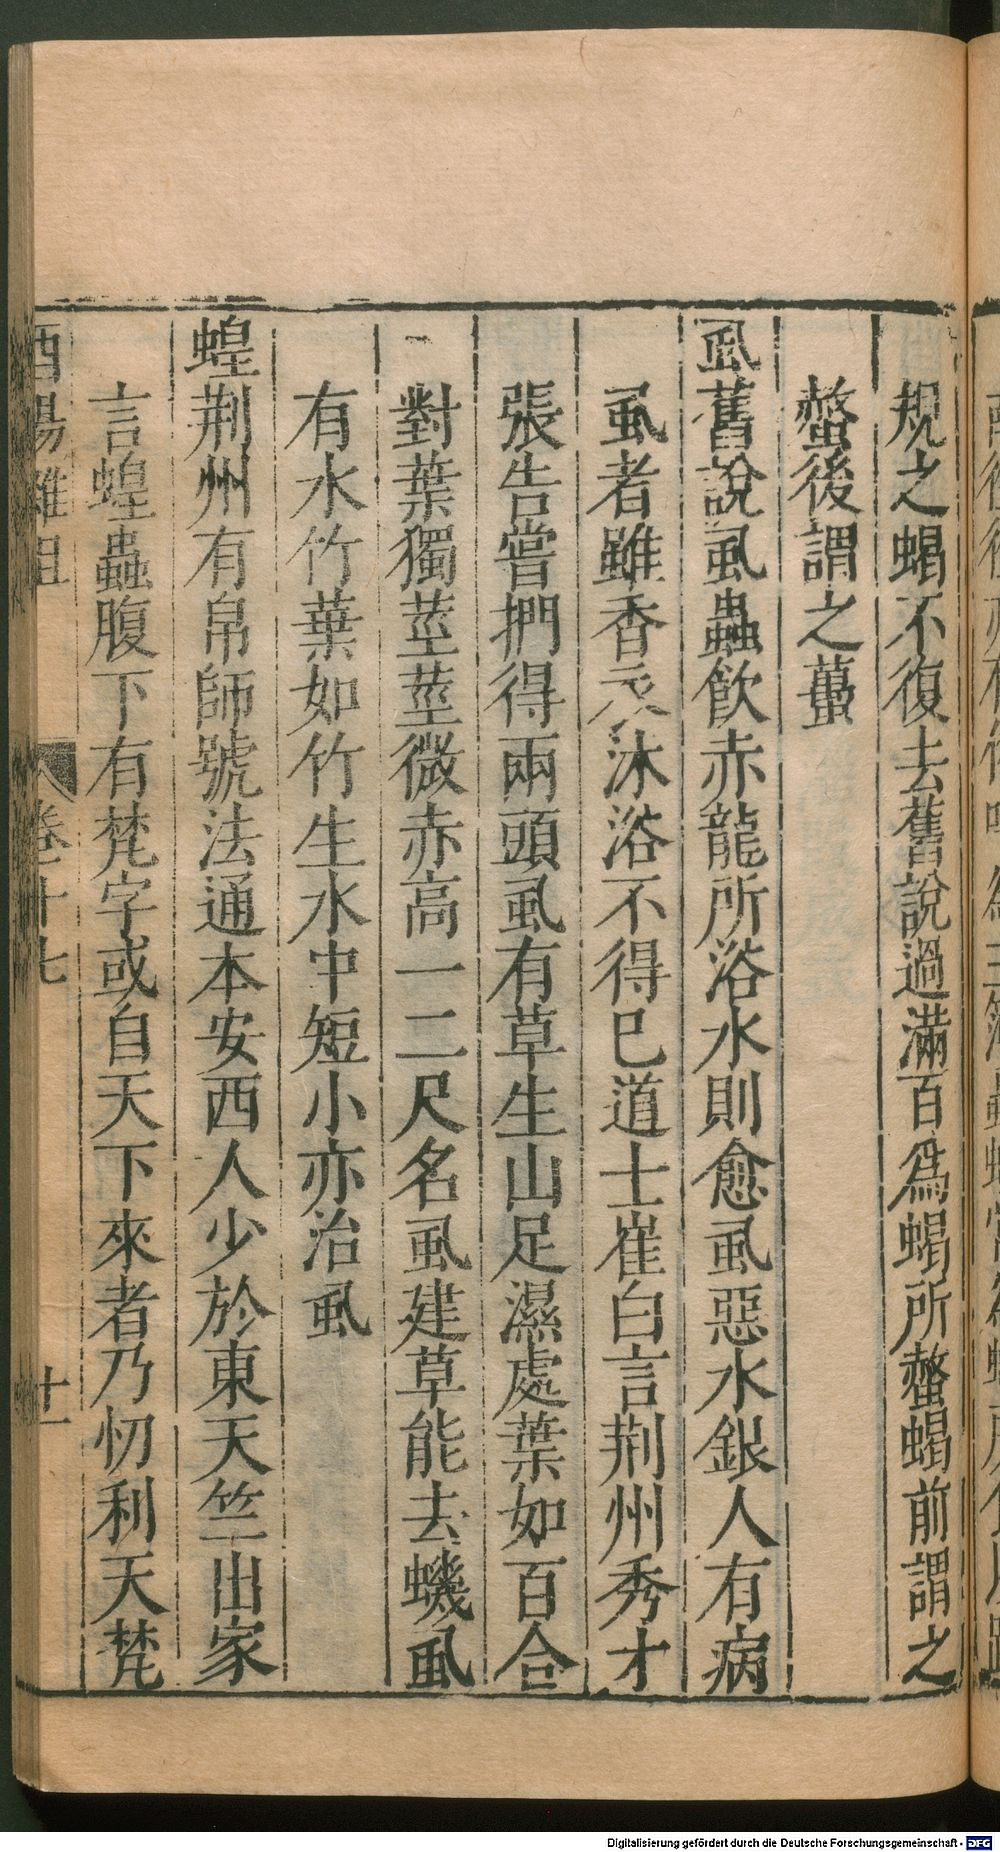 規之蝎不復去舊說過滿百爲蝎所螫蝎前謂之
螫後謂之蠆
虱舊說虱蟲飲赤龍所浴水則愈虱惡水銀人有病
虱者雖香衣沐浴不得已道士崔白言荆州秀才
張告嘗捫得兩頭虱有草生山足濕處葉如百合
對葉獨莖莖微赤高一二尺名虱建草能去蟣虱
有水竹葉如竹生水中短小亦治虱
蝗荆州有帛師號法通本安西人少於東天竺出家
言蝗蟲腹下有梵字或自天下來者乃忉利天梵
酉陽雜俎 卷十七 十一
Digitalisierung gefördert durch die Deutsche Forschungsgemeinschaft - DFG